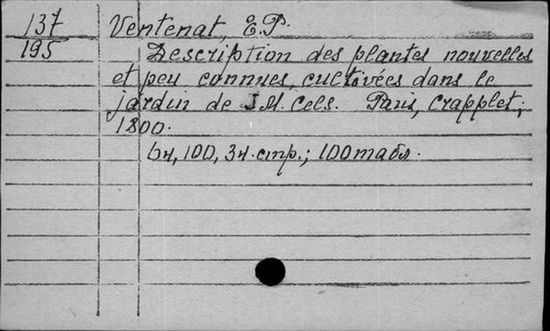 137 Ventenat, E.P.
195 Description des plantes nouvelles
et peu connues, cultivées dans le
jardin de J M. Cels. Paris, Crapplet;
1800.
64, 100, 34. стр.; 100 табл.